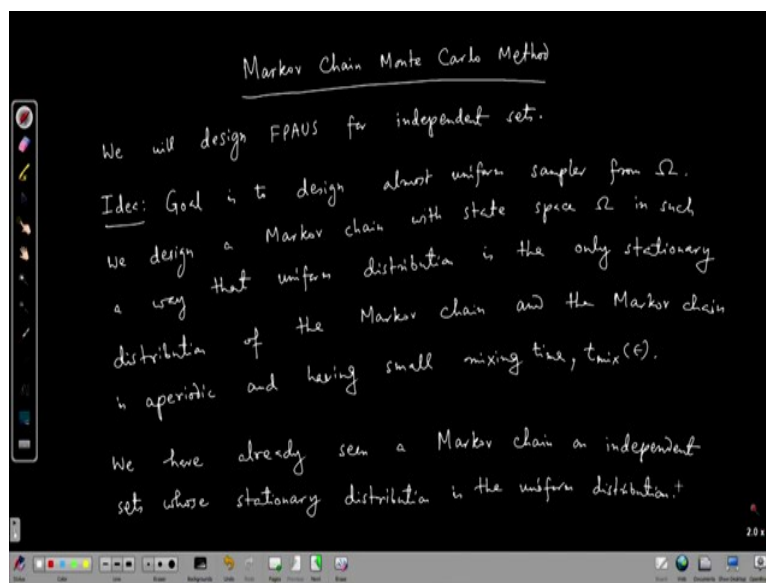 Markov Chain Monte Carlo Method
We will design FPAUS for independent sets.
Idea: Goal is to design almost uniform sampler from Ω.
We design a Markov chain with state space Ω in such
a way that uniform distribution is the only stationary
distribution of the Markov chain and the Markov chain
is aperiodic and having small mixing time, t_mix(ϵ).
We have already seen a Markov chain on independent
sets whose stationary distribution is the uniform distribution.
2.0 x